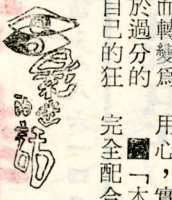 而轉變爲
於過分的
自己的狂
用心，實
「本
完全配合